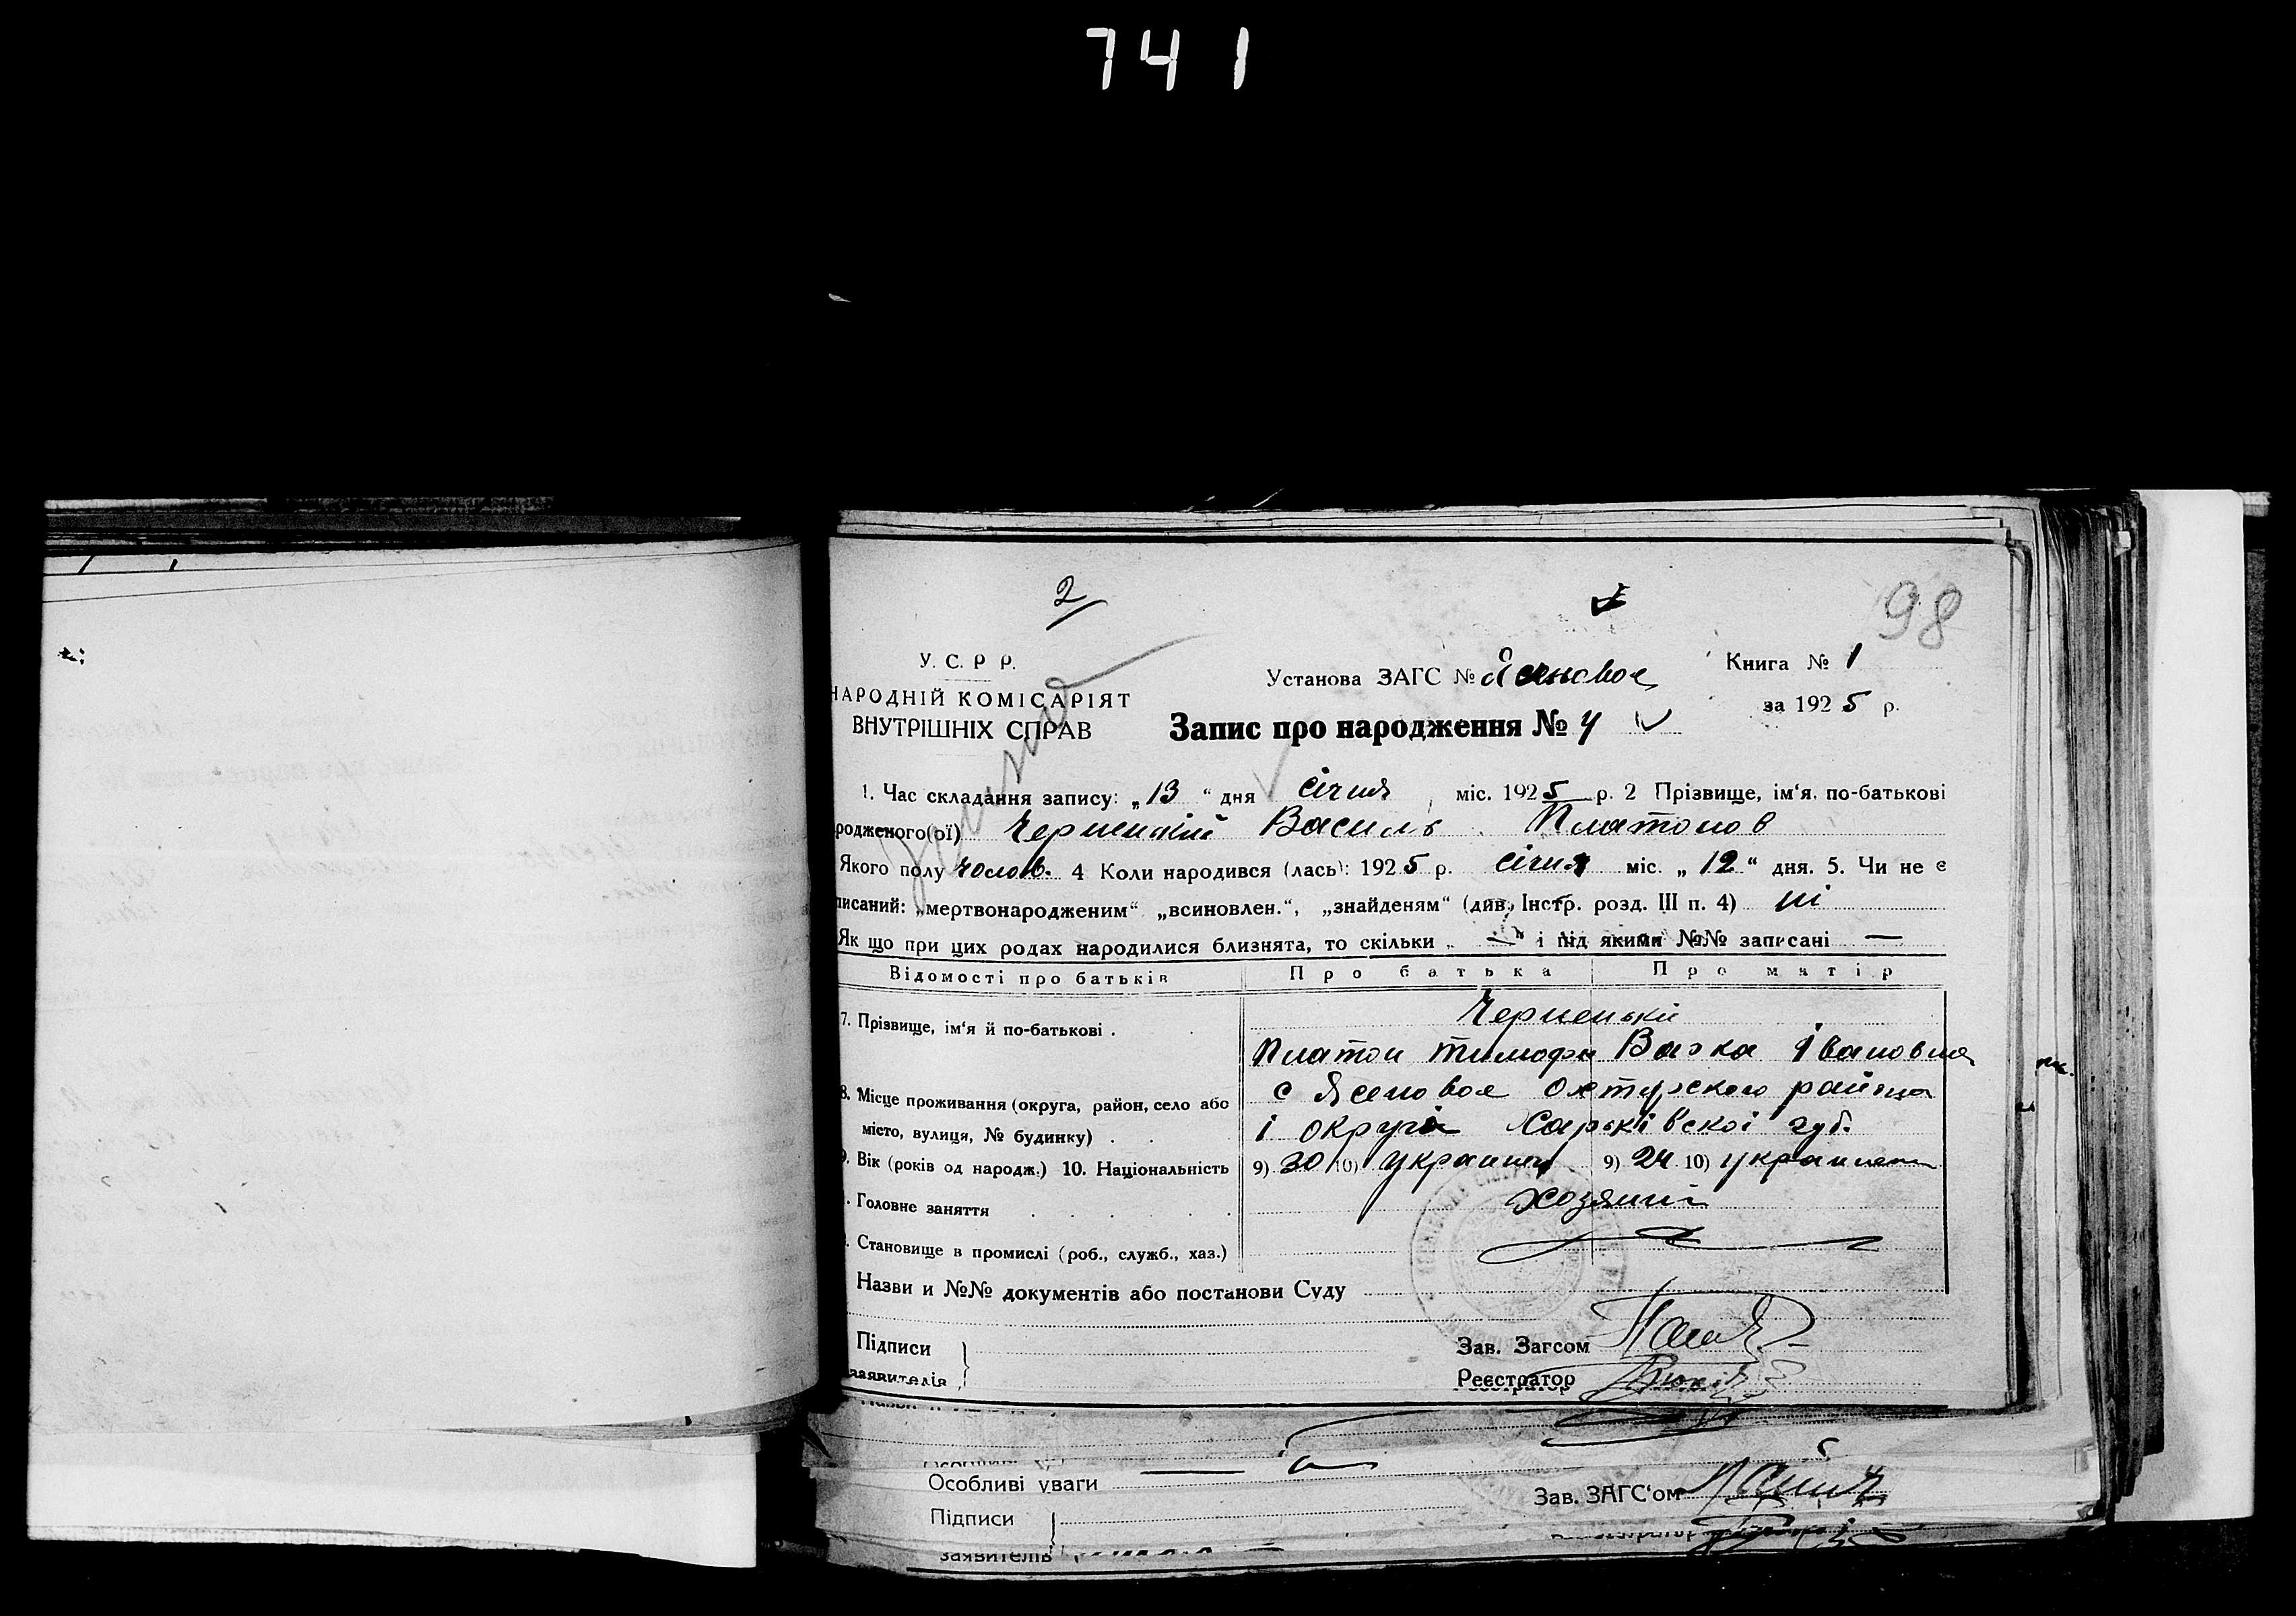 741
2
98
У. С. Р Р.
Установа ЗАГС № Ясеновое
Книга № 1
НАРОДНІЙ КОМІСАРІЯТ
за 1925 р.
ВНУТРІШНІХ СПРАВ
Запис про народження № 4
1. Час складання запису: „13“ дня січня міс. 1925 р. 2 Прізвище, ім‘я, по-батькові
родженого(ої) Василь Платонов
Якого полу чолов. 4 Коли народився (лась): 1925 р. січня міс. „12“ дня. 5. Чи не є
писаний: „мертвонародженим“ „всиновлен.“, „знайденям“ (див. Інстр. розд. III п. 4) ні
Як що при цих родах народилися близнята, то скільки „—“ і під якими №№ записані —
Відомості про батьків
Про батька
Про матір
7. Прізвище, ім‘я й по-батькові .
Платон Тимофи
Івановна
8. Місце проживання (округа, район, село або
с Ясеновое района
місто, вулиця, № будинку) . .
і округи Харьківскоі губ.
9. Вік (років од народж.) 10. Національність
9) 30 10) украинец
9) 24 10)
Головне заняття . . . . .
Становище в промислі (роб., служб., хаз.)
Назви и №№ документів або постанови Суду
Підписи
заявителів
Зав. Загсом
Реєстратор
Особливі уваги —
Зав. ЗАГС‘ом
Підписи
заявителів